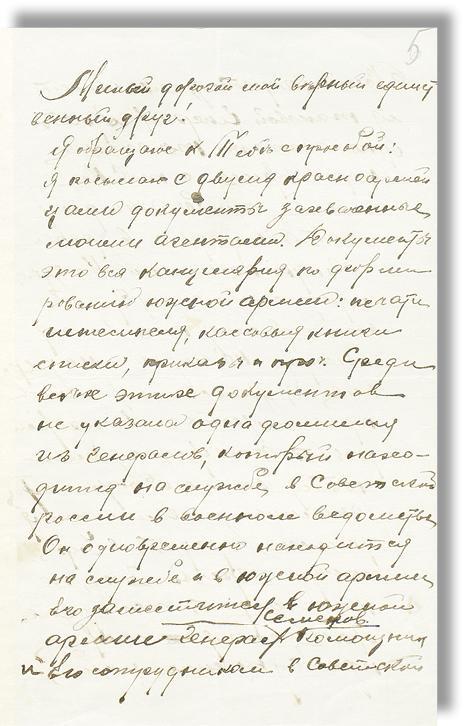 5
Милый дорогой мой верный единст
венный друг!
Я обращаюсь к Тебѣ с просьбой:
Я посылаю с двумя красноармей
цами документы захваченные
моими агентами. Документы
это вся канцелярия по форми
рованию южной армии: печати
штемпеля, кассовыя книги
списки, приказы и проч. Среди
всѣх этих документов
не указана одна фамилия
из генералов, который нахо-
дится на службѣ в Советской
России в военном ведомстве
Он одновременно находится
на службѣ и в южной армии
Его заместитель в южной
Семенов
армии генерал
и его сотрудники в Советской